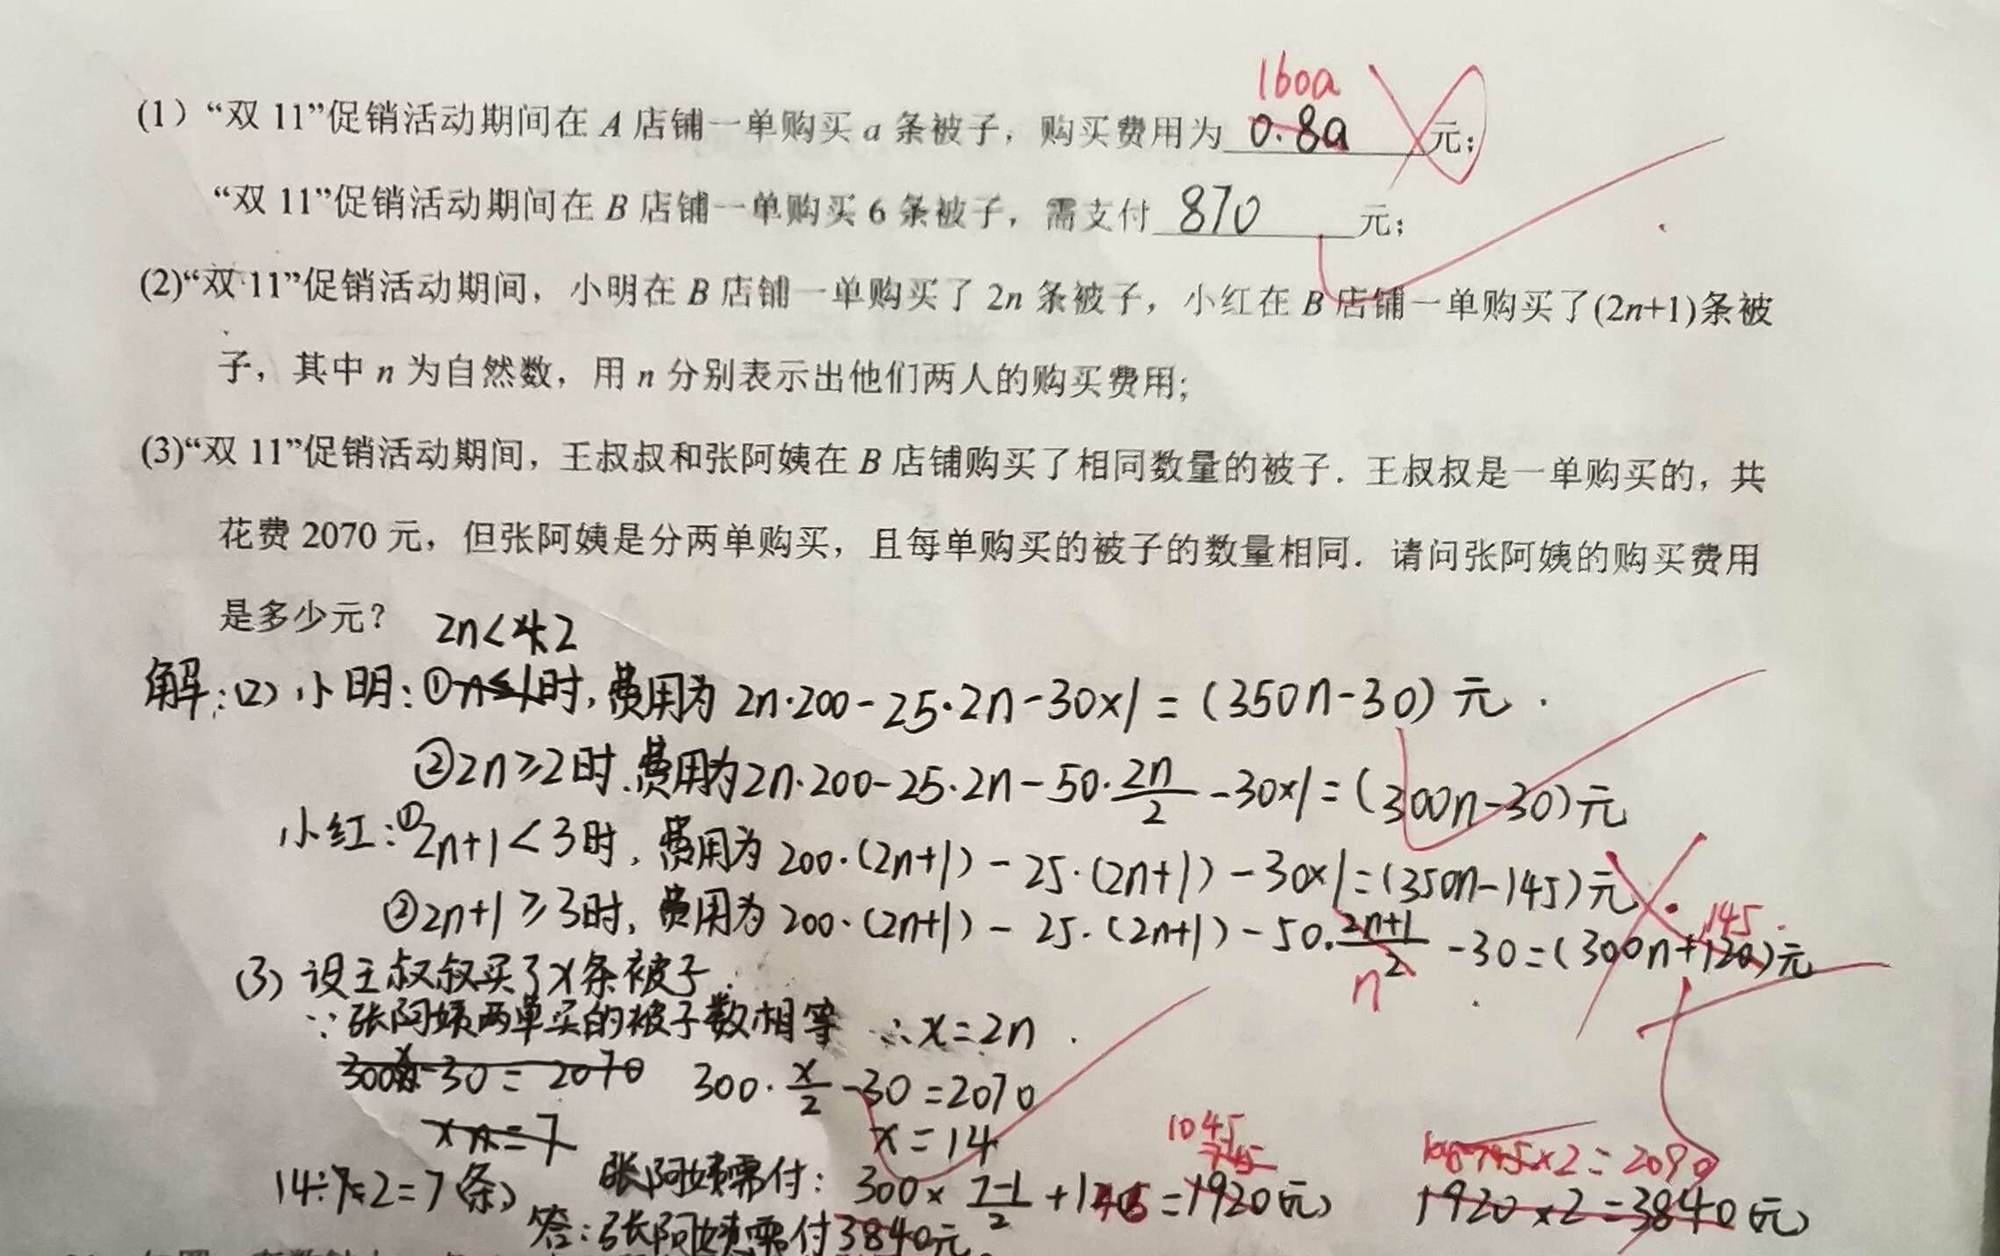 160a
(1)“双 11”促销活动期间在 A 店铺一单购买 a 条被子，购买费用为 0.8a 元；
“双 11”促销活动期间在 B 店铺一单购买 6 条被子，需支付 870 元；
(2)“双 11”促销活动期间，小明在 B 店铺一单购买了 2n 条被子，小红在 B 店铺一单购买了(2n+1)条被
子，其中 n 为自然数，用 n 分别表示出他们两人的购买费用；
(3)“双 11”促销活动期间，王叔叔和张阿姨在 B 店铺购买了相同数量的被子．王叔叔是一单购买的，共
花费 2070 元，但张阿姨是分两单购买，且每单购买的被子的数量相同．请问张阿姨的购买费用
是多少元？
2n<2
解:(2) 小明:①n≤1时,费用为 2n·200-25·2n-30×1=(350n-30)元.
②2n≥2时.费用为2n·200-25·2n-50·2n/2-30×1=(300n-30)元
小红:①2n+1<3时,费用为 200·(2n+1)-25·(2n+1)-30×1=(350n-145)元
②2n+1≥3时,费用为 200·(2n+1)-25·(2n+1)-50·2n+1/2-30=(300n+120)元
n
145
(3) 设王叔叔买了x条被子.
∵张阿姨两单买的被子数相等 ∴x=2n.
300x-30=2070 300·x/2-30=2070
n=7 x=14
1045
745
745×2=2090
14÷2=7(条) 张阿姨需付: 300×7-1/2+145=1920(元) 1920×2=3840(元)
答:张阿姨需付3840元.